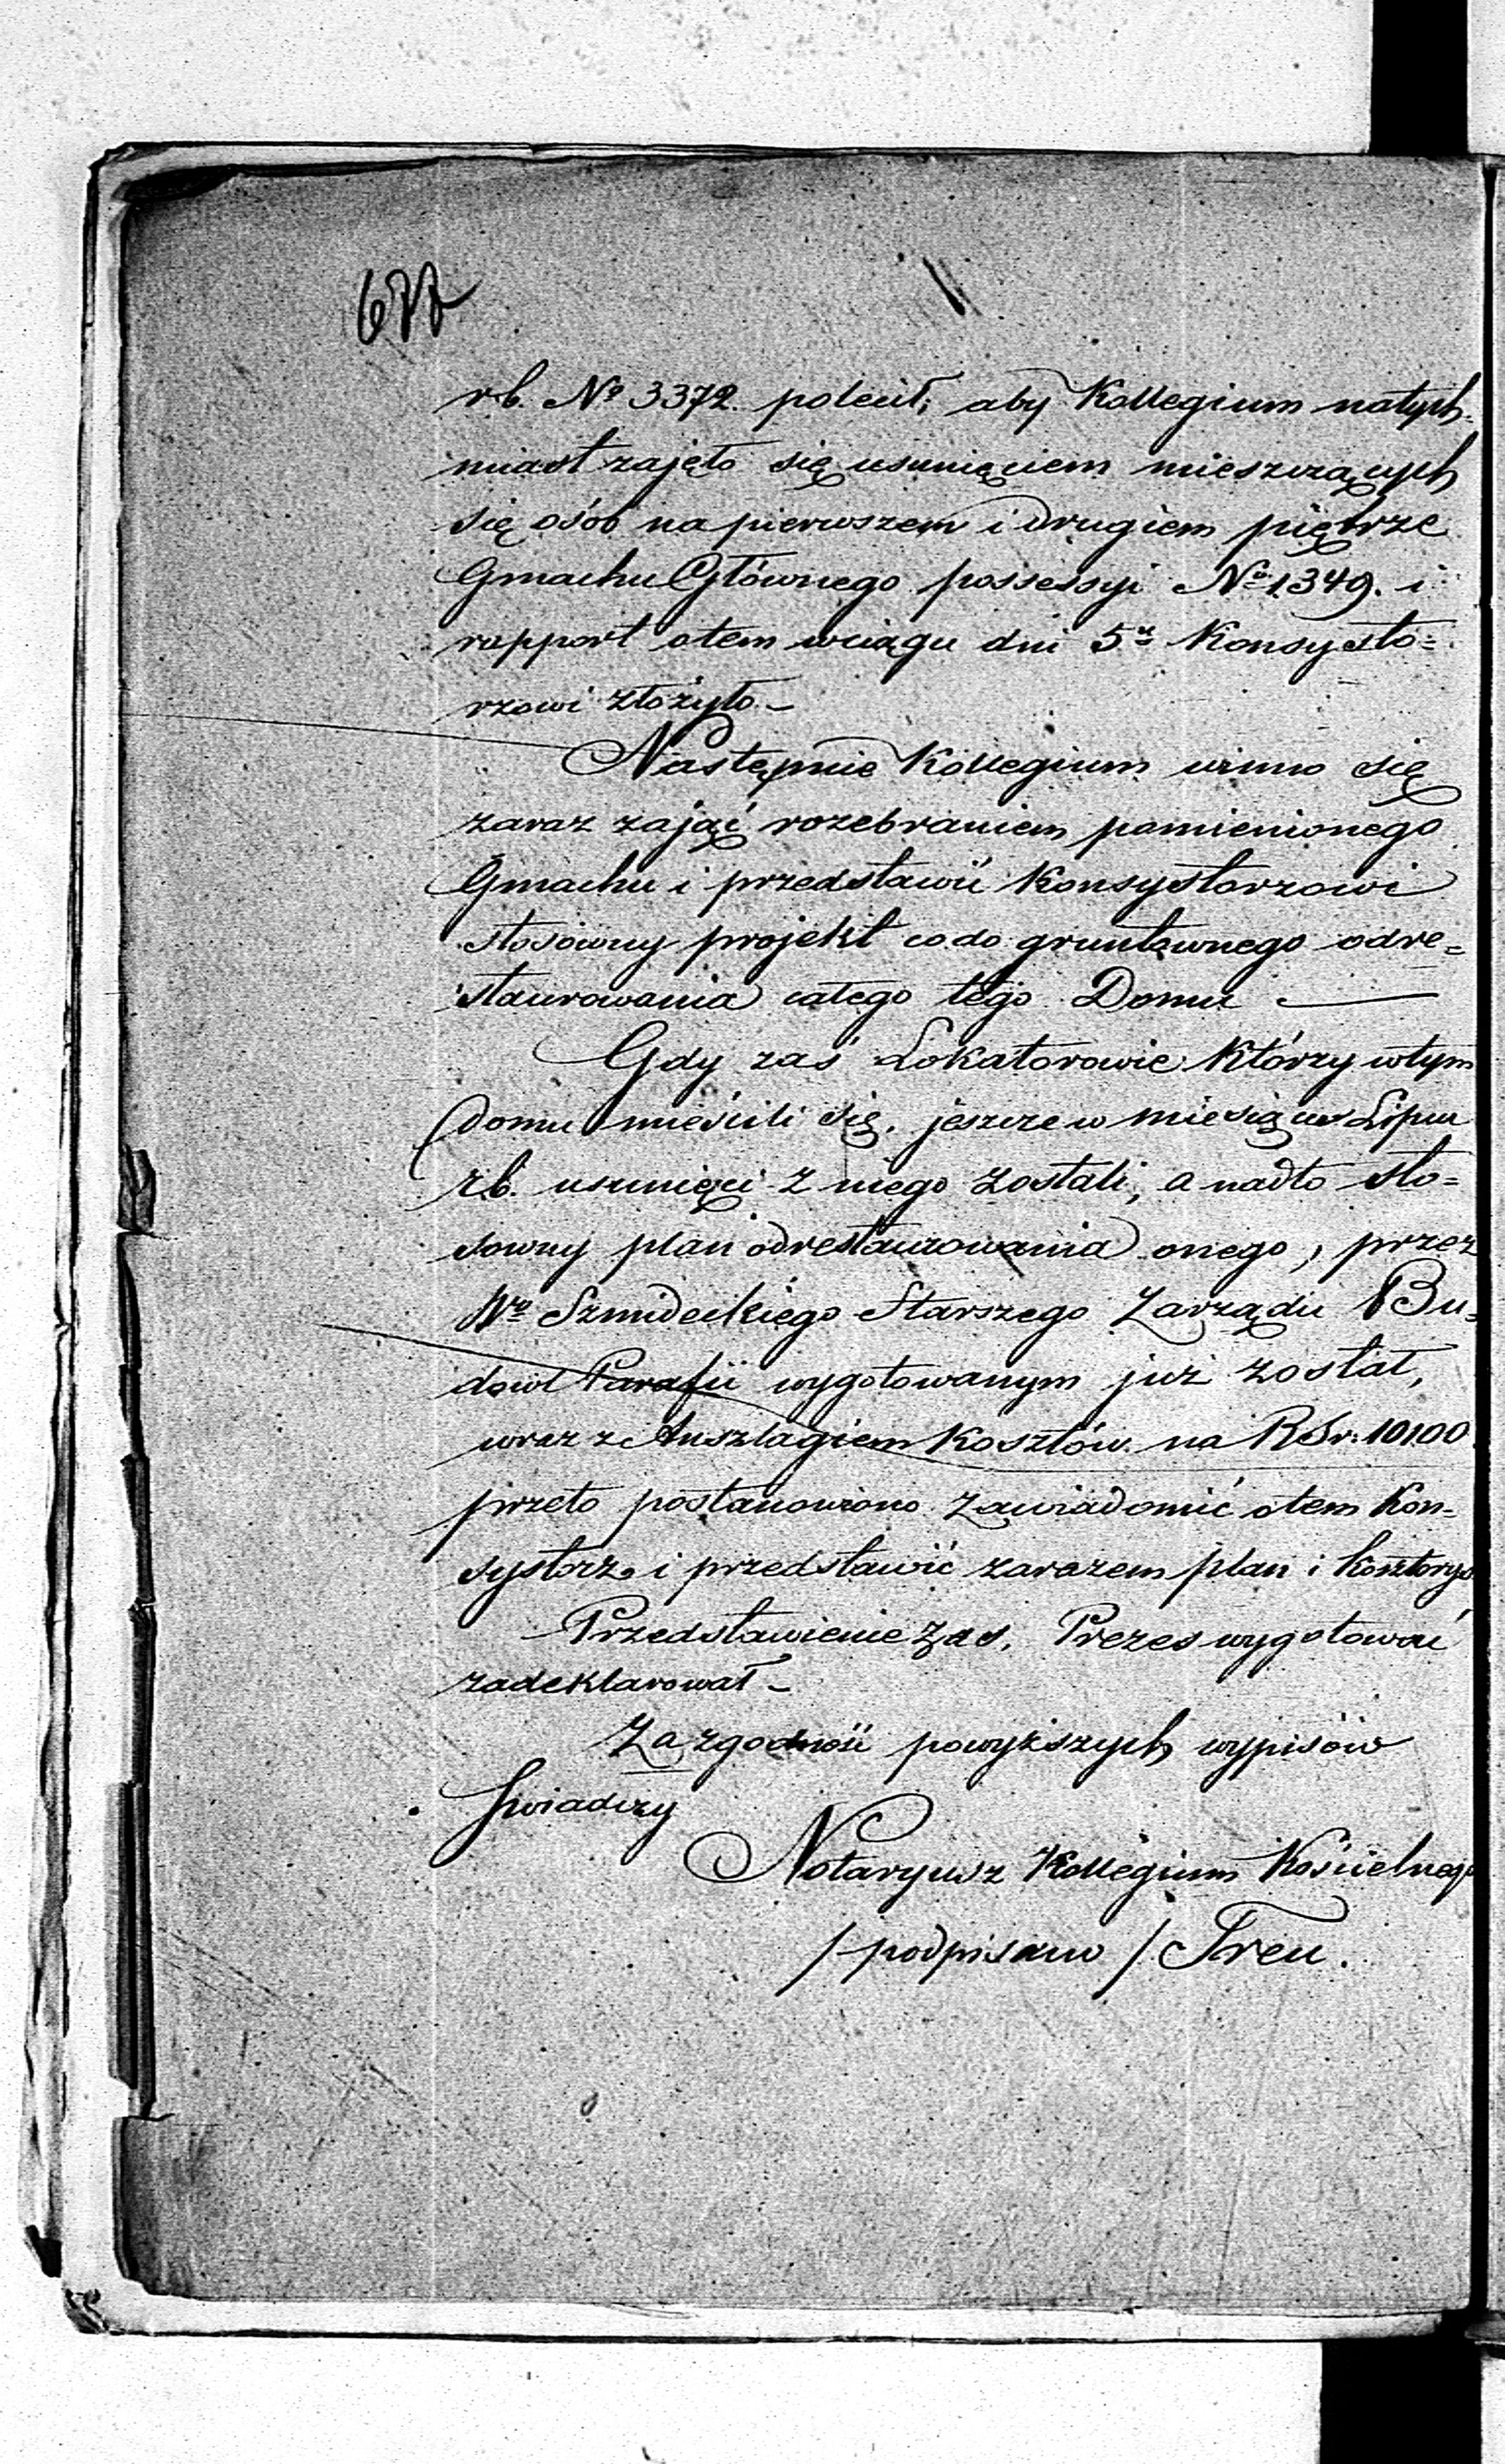 rb. No 3372. polecił, aby Kollegium natych-
miast zajęło się usunięciem mieszczących
się osób na pierwszem i drugiem piętrze
Gmachu Głównego possessyi No 1349. i
rapport otem wciągu dni 5u Konsysto=
rzowi złożyło –
Następnie Kollegium winno się
zaraz zająć rozebraniem pomienionego
Gmachu i przedstawić Konsystorzowi
stosowny projekt co do gruntownego odre=
staurowania całego tego Domu —
Gdy zaś Lokatorowie którzy wtym
Domu mieścili się, jeszcze w miesiącu Lipcu
rb. usunięci z niego zostali, a nadto sto=
sowny plan odrestaurowania onego, przez
Wo Szmideckiego Starszego Zarządu Bu=
dowl Parafii wygotowanym już został,
wraz z Anszlagiem Kosztów na RSr. 10100
przeto postanowiono zawiadomić otem Kon=
systorz i przedstawić zarazem plan i kosztorys
Przedstawienie zas, Prezes wygotować
zadeklarował –
Za zgodność powyższych wypisów
Świadczy
Notaryusz Kollegium Kościelnego
/podpisano/ Treu.